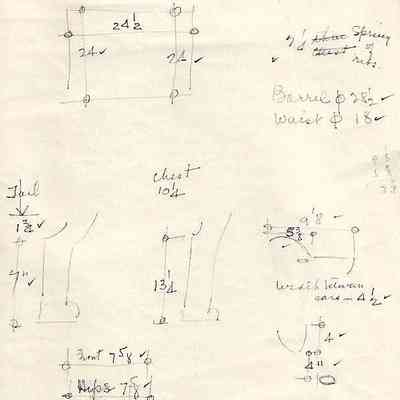 24 1/2
24 ✓
24 ✓
7 1/4 Spring
of
ribs.
Barrel ϕ 28 1/2 ✓
Waist ϕ 18 ✓
Tail
1 3/4 ✓
7" ✓
Chest
10 1/4
13 1/4
9 1/8 ✓
5 3/8
Width between
ears — 4 1/2 ✓
4 ✓
4" ✓
Front 7 5/8 ✓
Hips 7 5/8 ✓